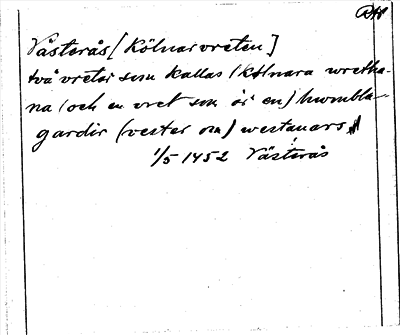 RAP
Västerås [Kölnarvreten]
två vretar som kallas (kolnara wretha-
na (och en vret som är en) humbla-
gardir (vester om) westanars
1/5 1452 Västerås